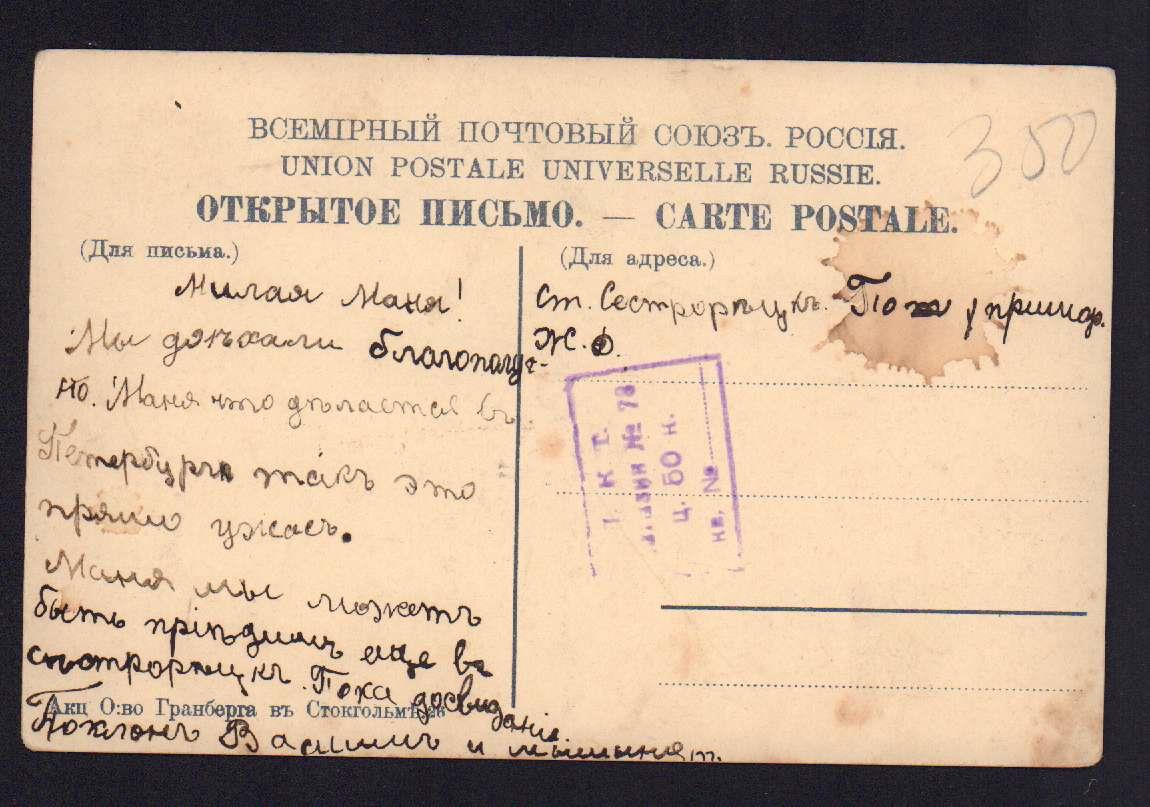 ВСЕМІРНЫЙ ПОЧТОВЫЙ СОЮЗЪ. РОССІЯ.
UNION POSTALE UNIVERSELLE RUSSIE.
ОТКРЫТОЕ ПИСЬМО. — CARTE POSTALE.
350
(Для письма.)
Милая Маня!
Мы доѣхали благополуч-
но. Маня что дѣлается въ
Петербургѣ такъ это
прямо ужасъ.
Маня мы можетъ
быть пріѣдимъ еще въ
сѣстрорѣцкъ. Пока досвиданіе
Поклонъ Васи и
Акц О:во Гранберга въ Стокгольмѣ 26
(Для адреса.)
Ст. Сестрорѣцкъ.
Ж. Д.
№ 78
Ц. 50 к.
кв. №